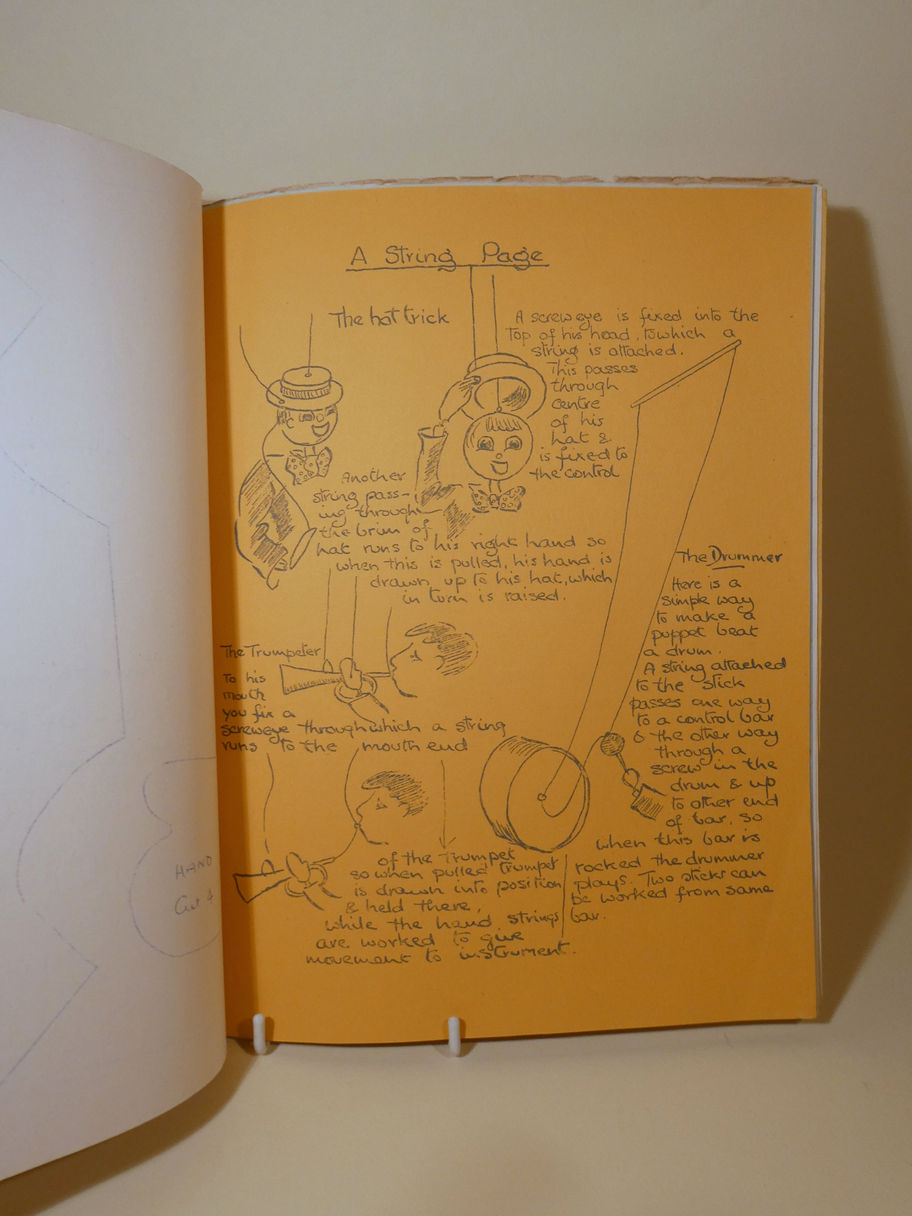 A String Page
The hat trick
A screw eye is fixed into the
top of his head, to which a
string is attached.
This passes
through
centre
of his
hat &
is fixed to
the control
Another
string pass-
ing through
the brim of
hat runs to his right hand so
when this is pulled, his hand is
drawn up to his hat, which
in turn is raised.
The Trumpeter
To his
mouth
you fix a
screweye through which a string
runs to the mouth end
of the trumpet
so when pulled trumpet
is drawn into position
& held there,
while the hand strings
are worked to give
movement to instrument.
The Drummer
Here is a
simple way
to make a
puppet beat
a drum.
A string attached
to the stick
passes one way
to a control bar
& the other way
through a
screw in the
drum & up
to other end
of bar, so
when this bar is
rocked the drummer
plays. Two sticks can
be worked from same
bar.
HAND
Cut 4